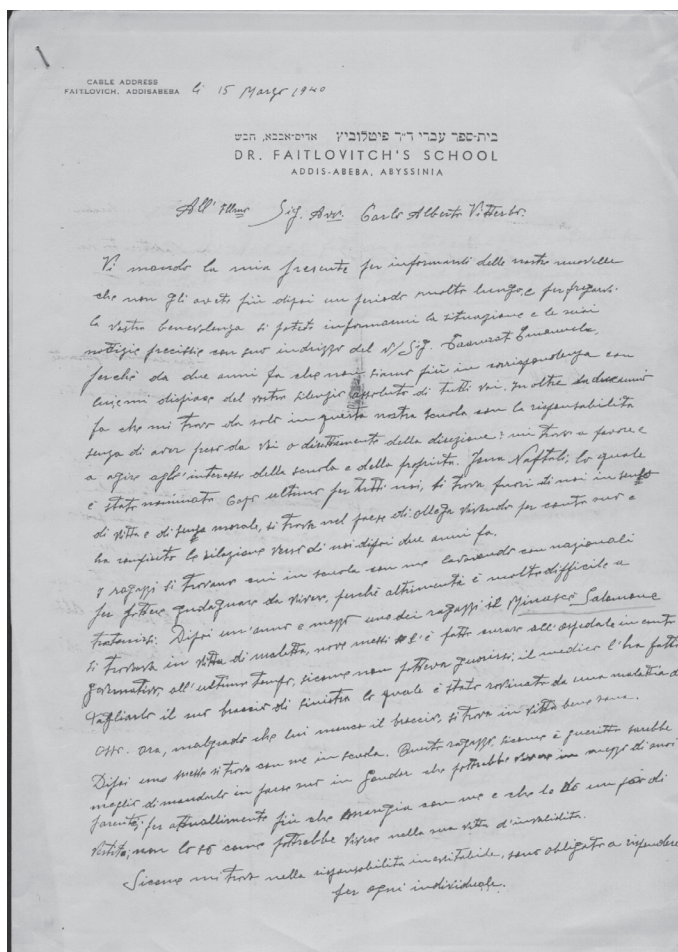 CABLE ADDRESS
FAITLOVICH, ADDISABEBA
li 15 Marzo 1940
בית-ספר עברי ד"ר פיטלוביץ אדיס-אבבא, חבש
DR. FAITLOVITCH'S SCHOOL
ADDIS-ABEBA, ABYSSINIA
All' Illmo Sig. Avv. Carlo Alberto Viterbo.
Vi mando la mia presente per informarvi delle nostre
che non gli avete più dipoi un periodo molto lungo, e per
la vostra benevolenza si potete informarmi la situazione e le suoi
notizie precise con suo indirizzo del V/ Sig. Taamrat Emanuele,
perchè da due anni fa che non siamo più in corrispondenza con
lui, mi dispiace del vostro silenzio assoluto di tutti voi. Inoltre da due anni
fa che mi trovo da solo in questa nostra scuola con la risponsabilità
senza di aver preso da voi o direttamente della direzione: mi trovo a favore e
a agire agl' interesse della scuola e della proprietà. Jona Naftali; lo quale
è stato nominato Capo ultimo per tutti noi, si trova fuori di noi in senso
di vitta e di senso morale, si trova nel paese di vivendo per conto suo e
ha la relazione verso di noi dipoi due anni fa.
I ragazzi si trovano qui in scuola con me lavorando con nazionali
per potere guadagnare da vivere, perchè altrimenti è molto difficile a
Dipoi un' anno e mezzo uno dei ragazzi il Minascè Salomone
si trovava in vitta di malatia, nove messi s'è fatto curare all' ospedale in conto
governativo, all' ultimo tempo, sicome non potteva guarirsi, il medico l' ha fatto
tagliarlo il suo braccio di sinistra lo quale è stato rovinato da una malattia d
Ora, malgrado che lui manca il braccio, si trova in vitta bene sana.
Dipoi uno messo si trova con me in scuola. Questo ragazzo, sicome è guarito sarebbe
meglio di mandarlo in paese suo in Gondar che potrebbe vivere in mezzo di suoi
parenti; per attuallmente più che mangia con me e che lo do un pajo di
vestito, non lo so come pottrebbe vivere nella sua vitta d' invalidità.
Sicome mi trovo nella risponsabilità inevitabile, sono obligato a rispondere
per ogni individuale.